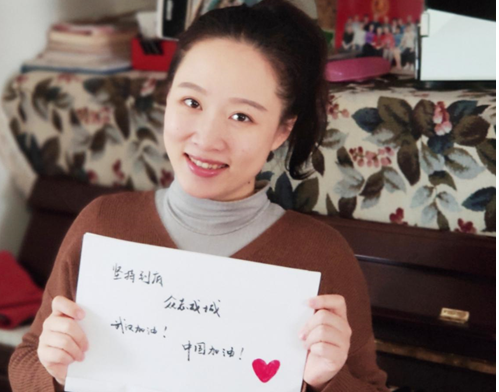 坚持到底
众志成城
武汉加油！
中国加油！